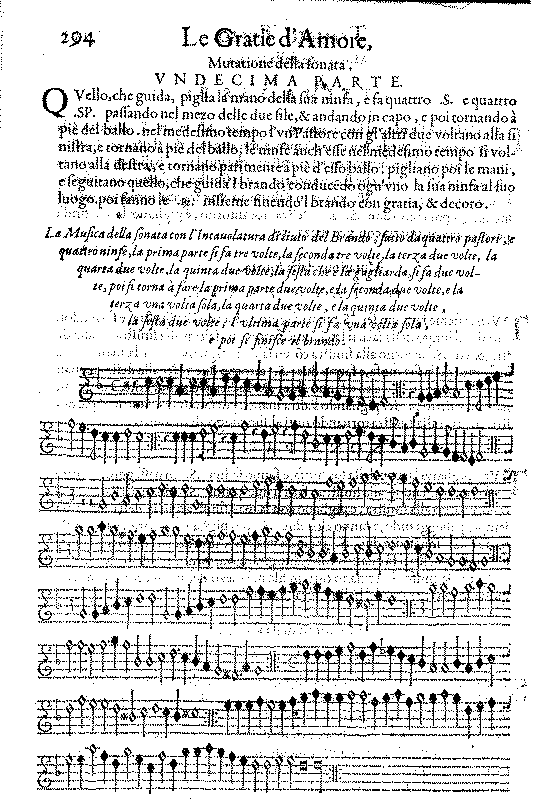 294 Le Gratie d'Amore,
Mutatione della sonata,
VNDECIMA PARTE.
QVello, che guida, piglia la mano della sua ninfa, e fa quattro .S. e quattro
.SP. passando nel mezo delle due file, & andando in capo, e poi tornando à
piè del ballo. nel medesimo tempo l'vn Pastore con gl'altri due voltano alla si
nistra, e tornano à piè del ballo, le ninfe anch'esse nel medesimo tempo si vol-
tano alla destra, e tornano parimente à piè d'esso ballo: pigliano poi le mani,
e seguitano quello, che guida l brando conducēdo ogn'vno la sua ninfa al suo
luogo. poi fanno le insieme finendo l brando con gratia, & decoro.
La Musica della sonata con l'Intauolatura di liuto del Brando, fatto da quattro pastori, e
quattro ninfe, la prima parte si fa tre volte, la seconda tre volte, la terza due volte, la
quarta due volte, la quinta due volte, la sesta che è la gagliarda, si fa due vol-
te, poi si torna à fare la prima parte due volte, e la seconda due volte, e la
terza vna volta sola, la quarta due volte, e la quinta due volte,
la sesta due volte, l'vltima parte si fa vna volta sola,
e poi si finisce il brando.